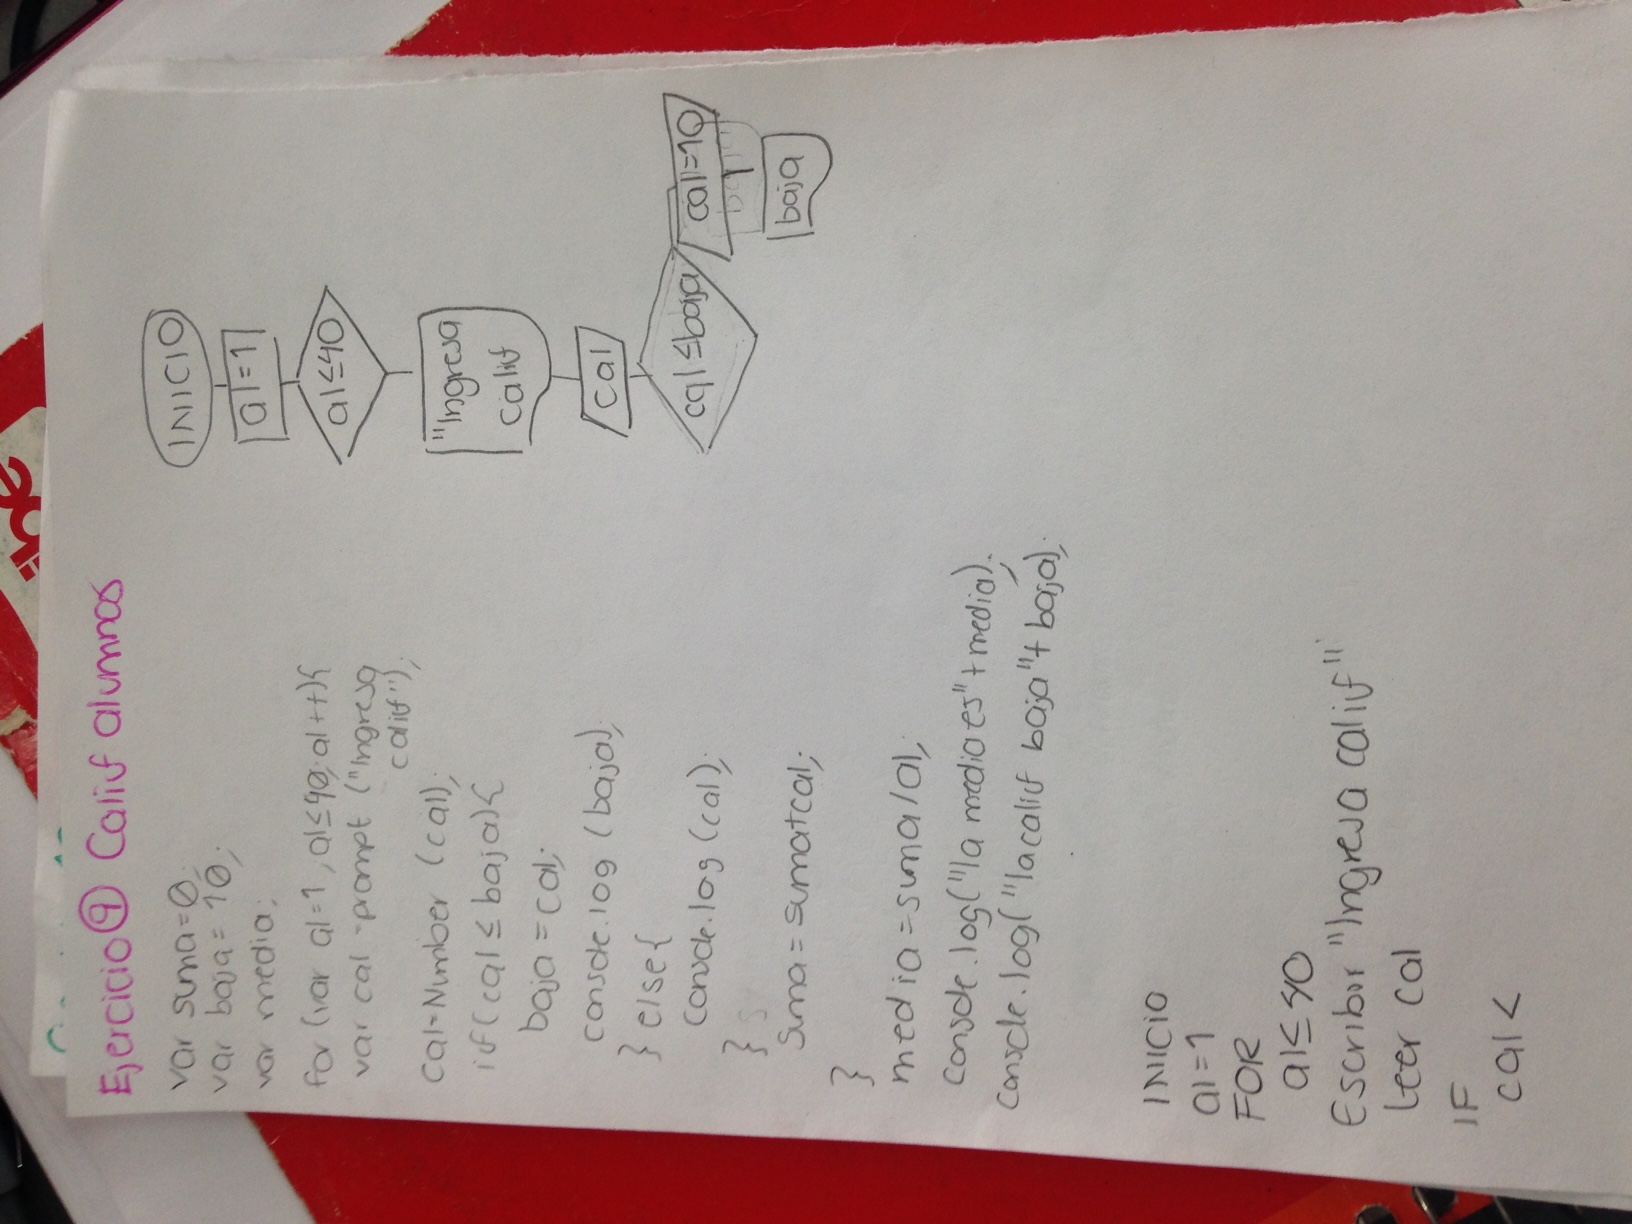 Ejercicio 9 Calif alumnos
var suma=0;
var baja= 10;
var media;
for (var al=1, al≤40; al++){
var cal =prompt ("Ingresa
calif");
cal=Number (cal);
if(cal ≤ baja){
baja=cal;
console.log (baja);
} else{
console.log (cal);
}
suma=suma+cal;
}
media=suma/al;
console.log("la media es"+media);
console.log("la calif baja"+baja);
INICIO
al=1
FOR
al≤40
Escribir "Ingresa calif"
leer cal
IF
cal <
INICIO
al=1
al≤40
"Ingresa
calif
cal
cal≤baja
cal=10
baja